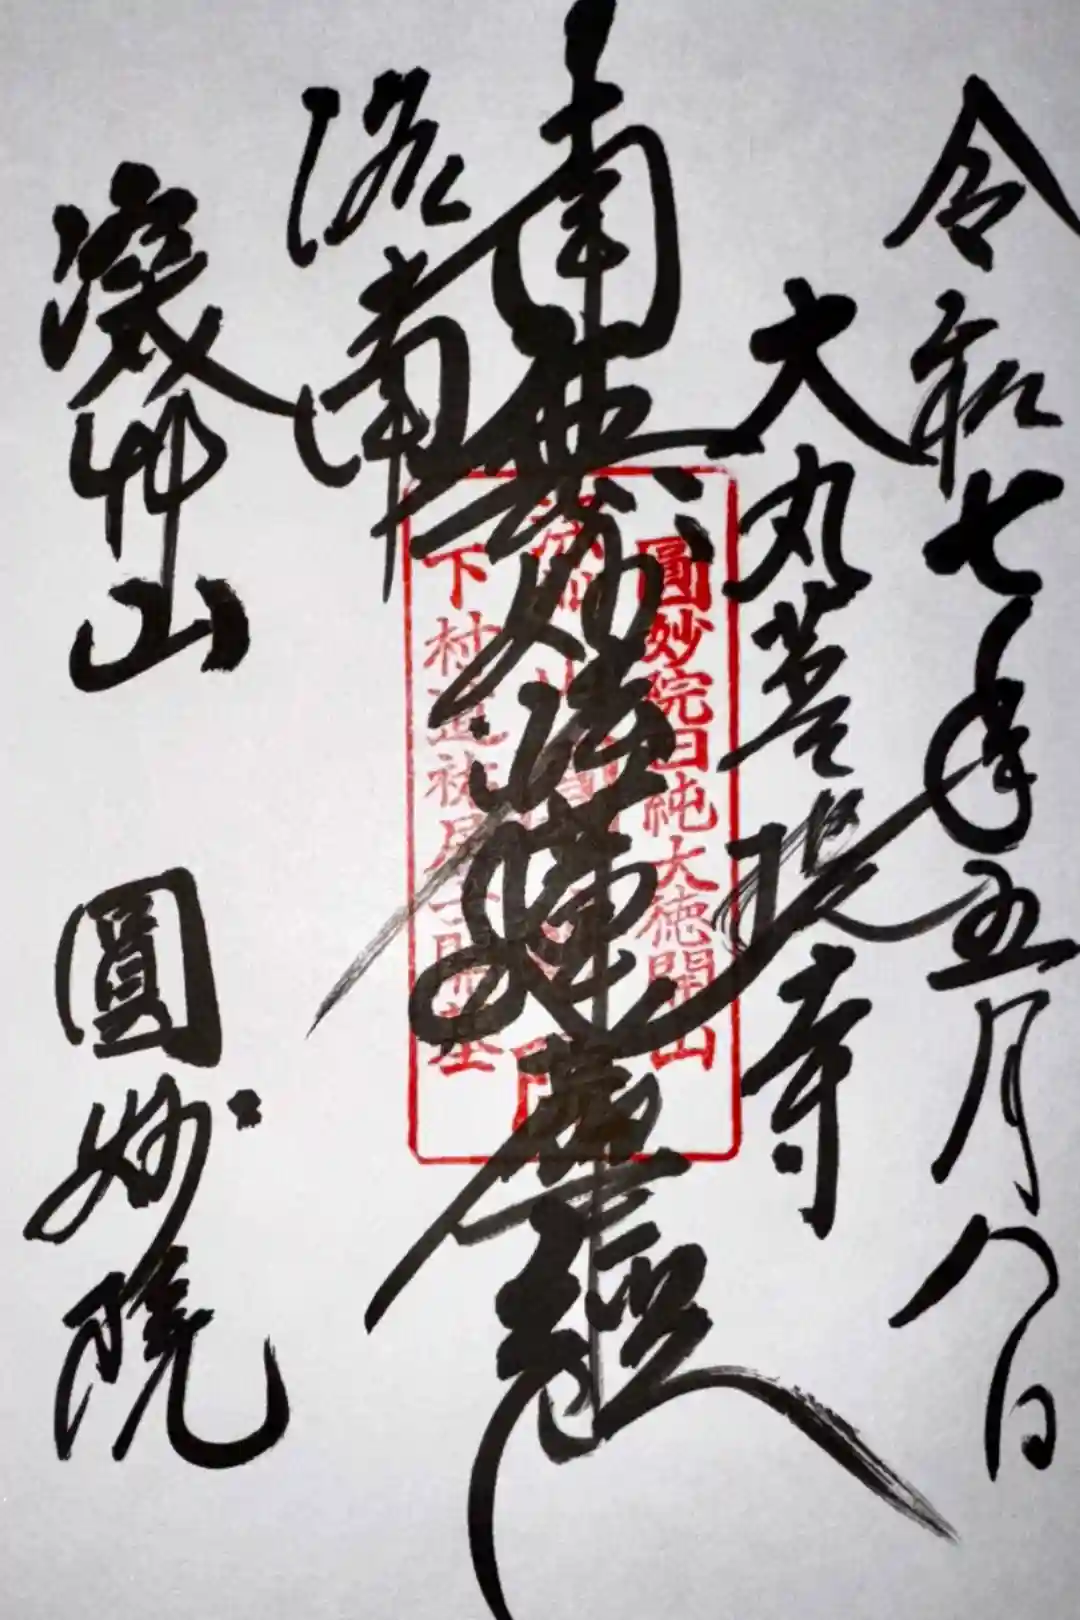 令和七年五月八日
大丸菩提寺
南無妙法蓮華経
洛南
深艸山 圓妙院
圓妙院日純大徳開山
深艸山
下村道祐居士開基